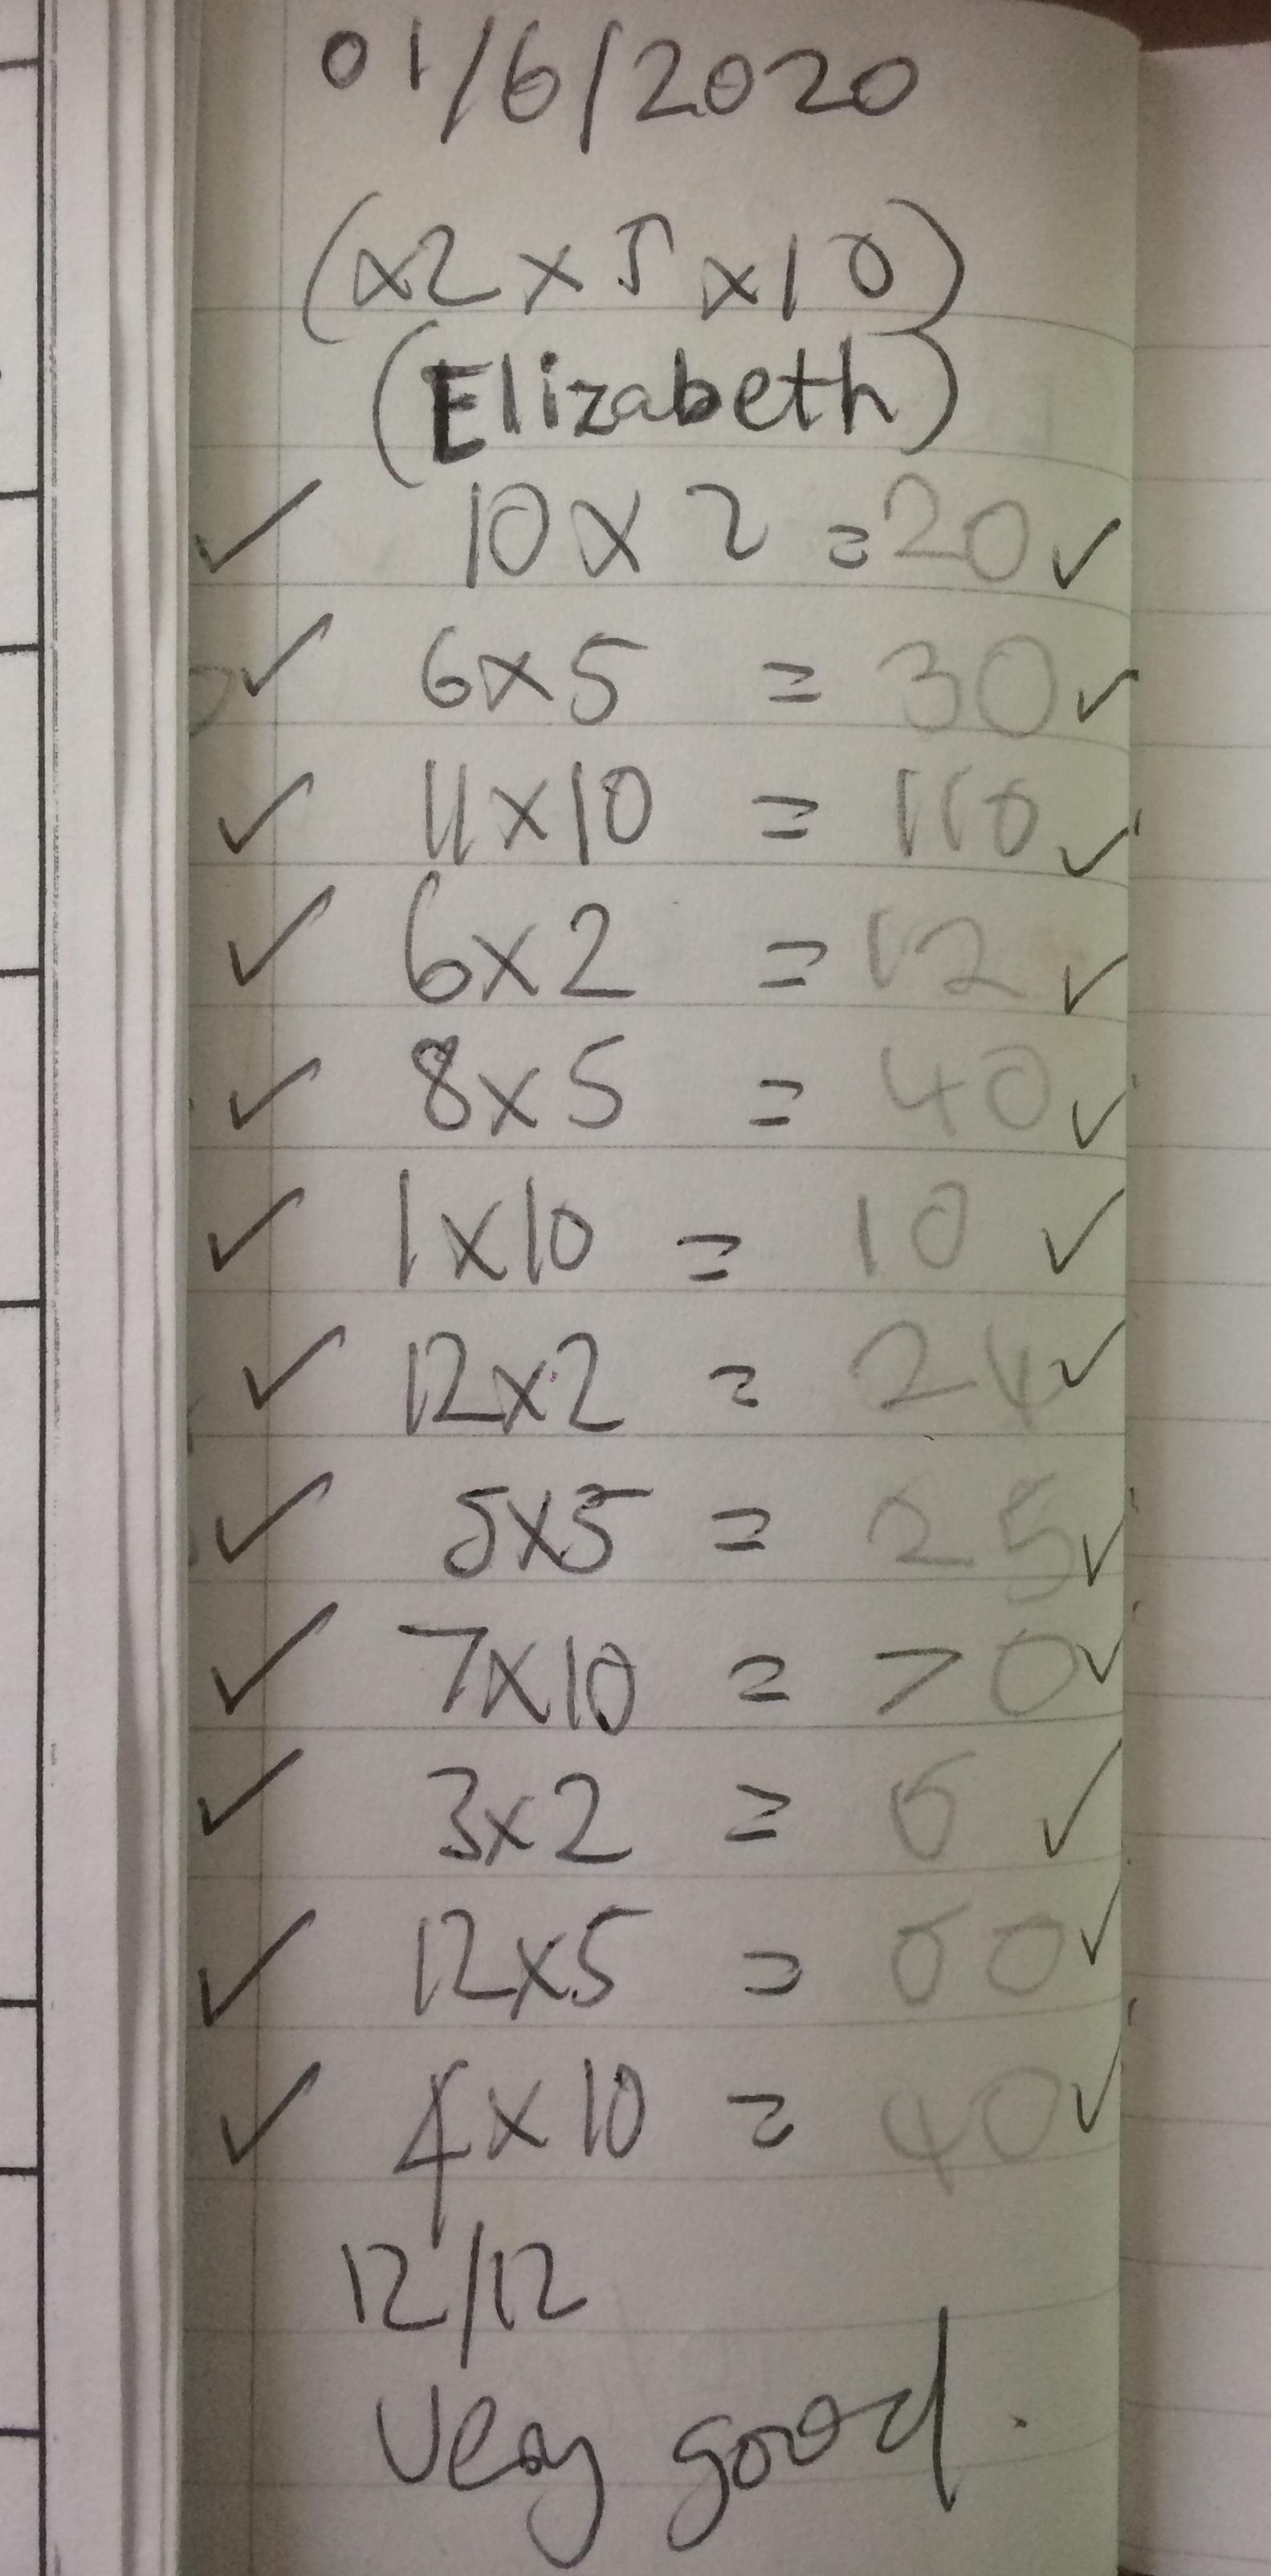 01/6/2020
(x2 x5 x10)
(Elizabeth)
✓ 10 x 2 = 20 ✓
✓ 6 x 5 = 30 ✓
✓ 11 x 10 = 110 ✓
✓ 6 x 2 = 12 ✓
✓ 8 x 5 = 40 ✓
✓ 1 x 10 = 10 ✓
✓ 12 x 2 = 24 ✓
✓ 5 x 5 = 25 ✓
✓ 7 x 10 = 70 ✓
✓ 3 x 2 = 6 ✓
✓ 12 x 5 = 60 ✓
✓ 4 x 10 = 40 ✓
12/12
very good.